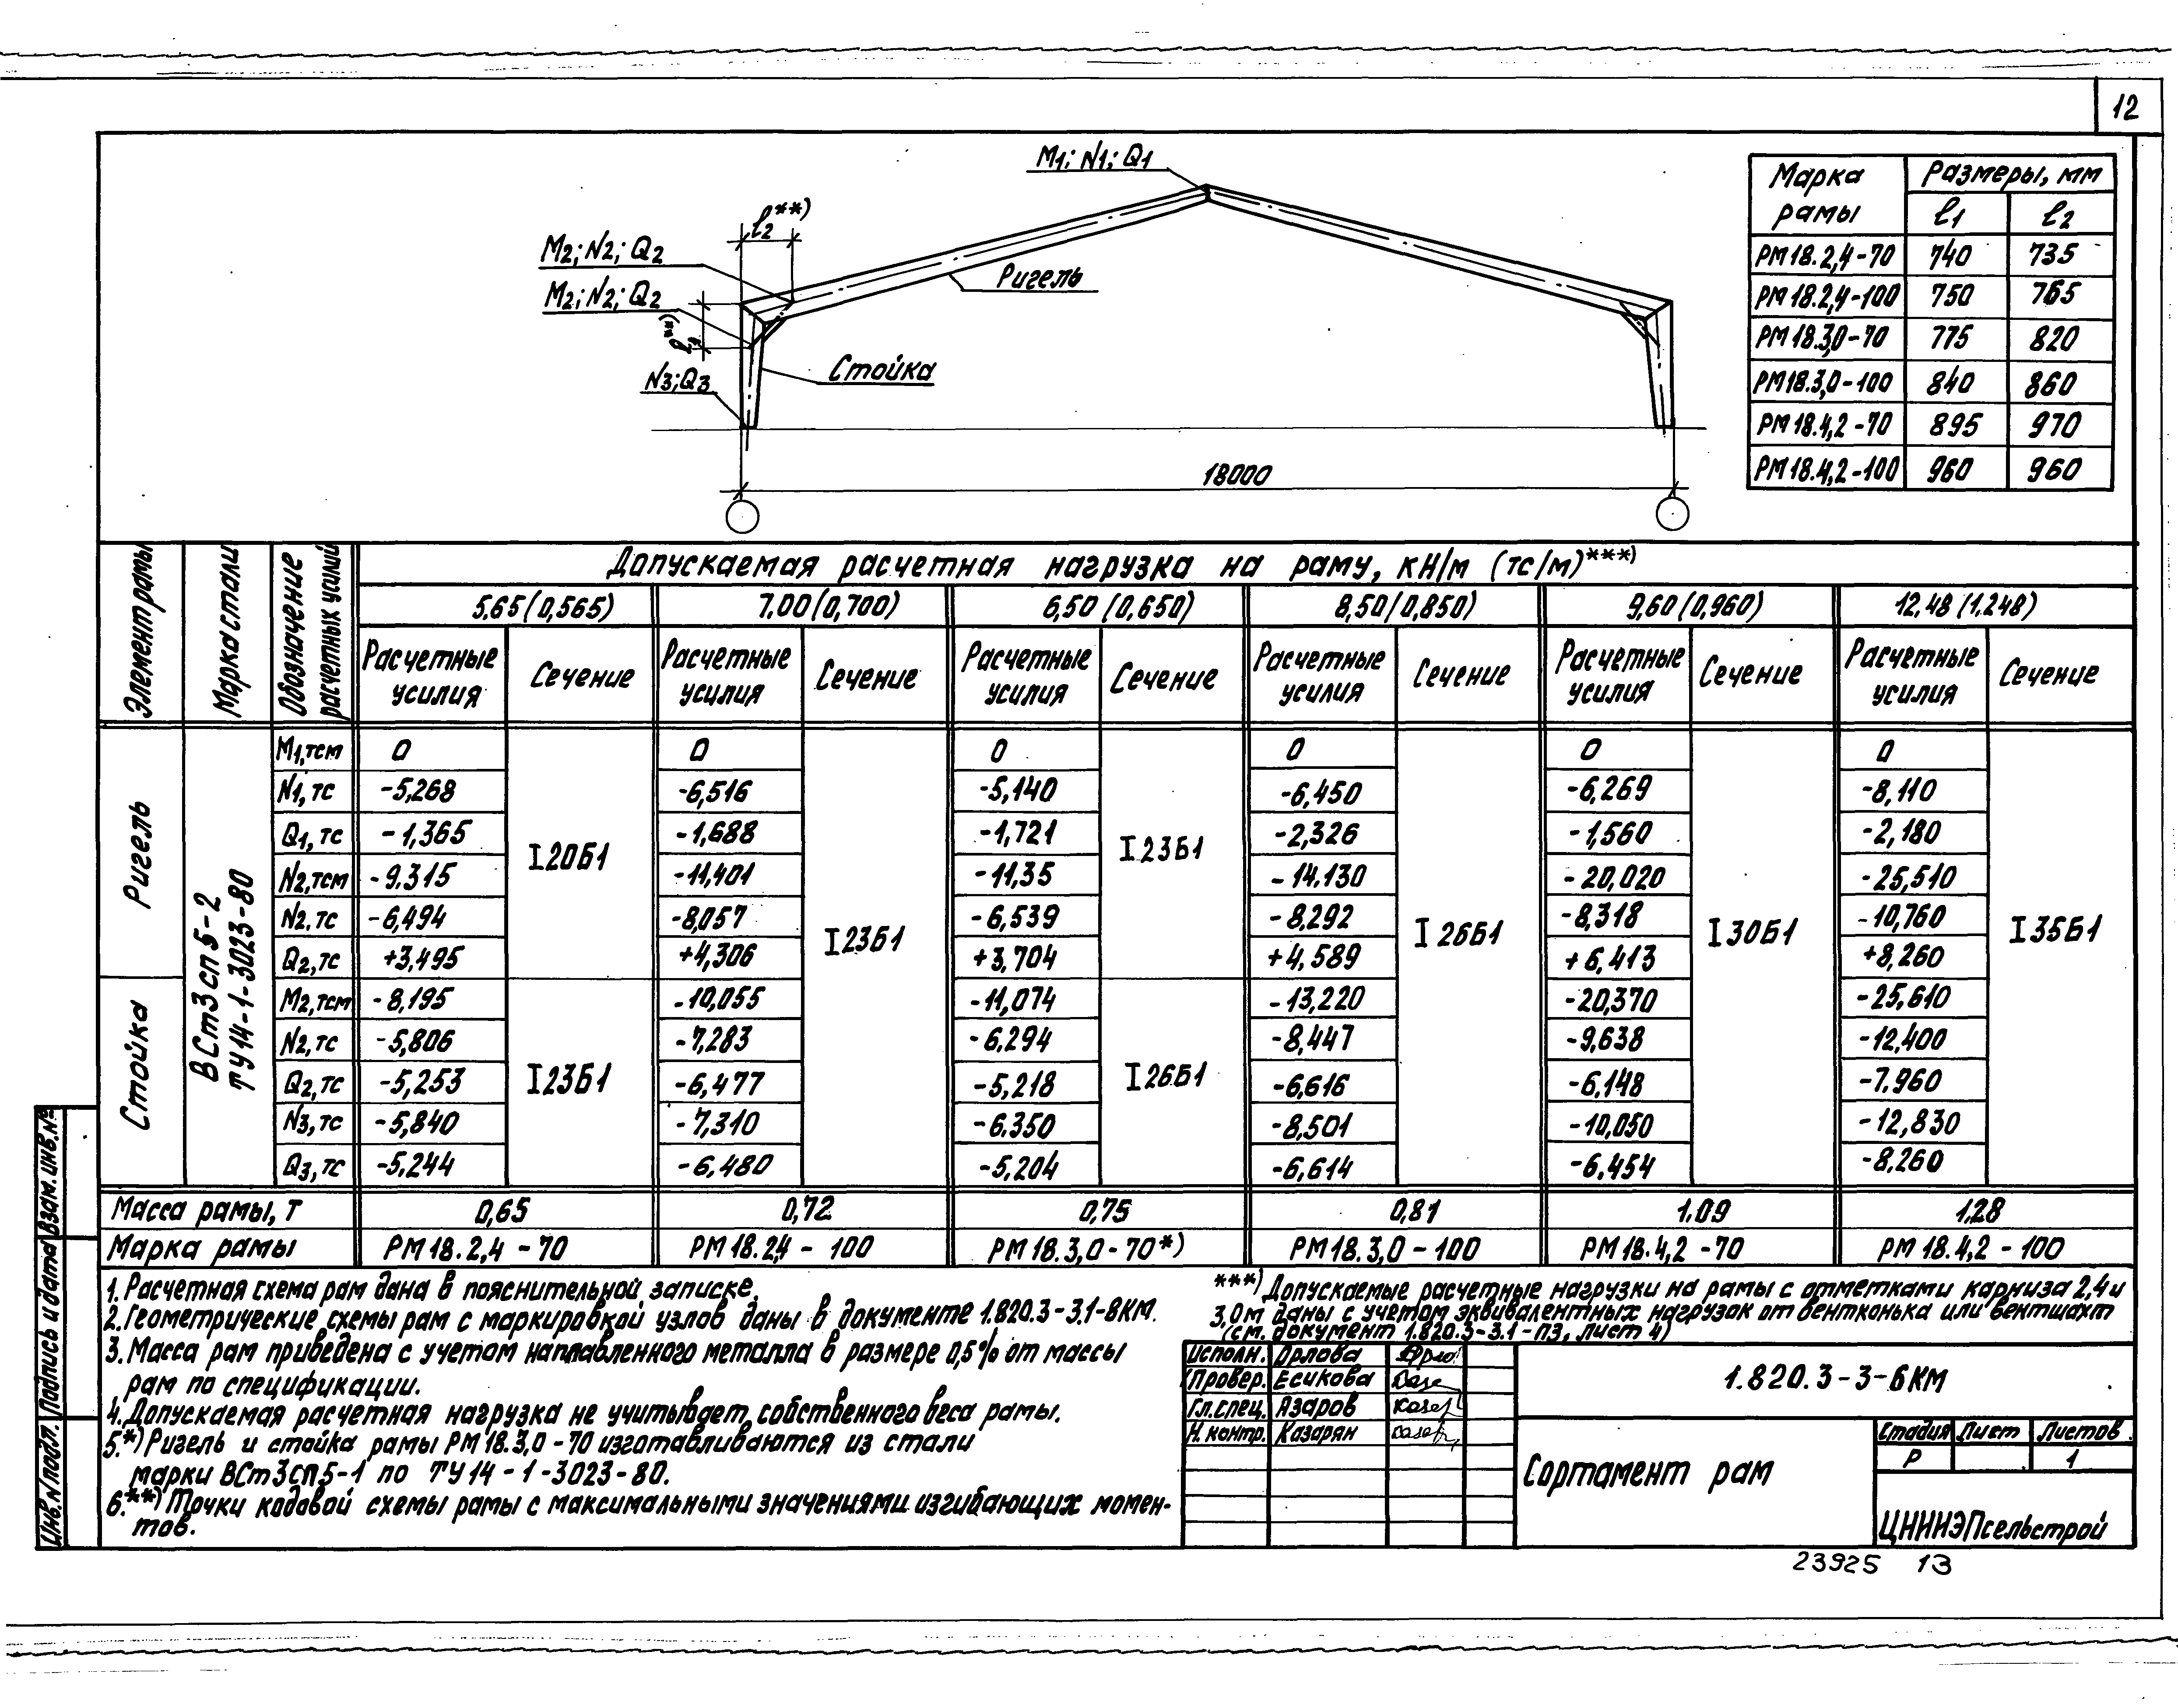 12
M1; N1; Q1
l2**)
M2; N2; Q2
M2; N2; Q2
l1**)
N3; Q3
Ригель
Стойка
18000
Марка рамы | Размеры, мм
l1 | l2
РМ18.2,4-70 | 740 | 735
РМ18.2,4-100 | 750 | 765
РМ18.3,0-70 | 775 | 820
РМ18.3,0-100 | 840 | 860
РМ18.4,2-70 | 895 | 970
РМ18.4,2-100 | 960 | 960
Элемент рамы | Марка стали | Обозначение расчетных усилий | Допускаемая расчетная нагрузка на раму, кН/м (тс/м)***)
5,65(0,565) | 7,00(0,700) | 6,50(0,650) | 8,50(0,850) | 9,60(0,960) | 12,48(1,248)
Расчетные усилия | Сечение | Расчетные усилия | Сечение | Расчетные усилия | Сечение | Расчетные усилия | Сечение | Расчетные усилия | Сечение | Расчетные усилия | Сечение
Ригель
ВСт3сп5-2
ТУ14-1-3023-80
M1,тсм | 0 | 0 | 0 | 0 | 0 | 0
N1,тс | -5,268 | -6,516 | -5,140 | -6,450 | -6,269 | -8,110
Q1,тс | -1,365 | -1,688 | -1,721 | -2,326 | -1,560 | -2,180
I20Б1 | I23Б1
N2,тсм | -9.315 | -11,401 | -11,35 | -14.130 | -20,020 | -25,510
N2.тс | -6,494 | -8,057 | -6,539 | -8,292 | -8,318 | -10,760
I23Б1 | I26Б1 | I30Б1 | I35Б1
Q2,тс | +3,495 | +4,306 | +3,704 | +4,589 | +6,413 | +8,260
Стойка
M2,тсм | -8,195 | -10,055 | -11,074 | -13,220 | -20,370 | -25,610
N2,тс | -5,806 | -7,283 | -6,294 | -8,447 | -9,638 | -12,400
Q2,тс | -5,253 | -6,477 | -5,218 | -6,616 | -6,148 | -7,960
I23Б1 | I26Б1
N3,тс | -5,840 | -7,310 | -6,350 | -8,501 | -10,050 | -12,830
Q3,тс | -5,244 | -6,480 | -5,204 | -6,614 | -6,454 | -8,260
Масса рамы, т | 0,65 | 0,72 | 0,75 | 0,81 | 1.09 | 1.28
Марка рамы | РМ18.2,4-70 | РМ18.2,4-100 | РМ18.3,0-70*) | РМ18.3,0-100 | РМ18.4,2-70 | РМ18.4,2-100
1. Расчетная схема рам дана в пояснительной записке.
2. Геометрические схемы рам с маркировкой узлов даны в документе 1.820.3-3.1-8КМ.
3. Масса рам приведена с учетом наплавленного металла в размере 0,5% от массы
рам по спецификации.
4. Допускаемая расчетная нагрузка не учитывает собственного веса рамы.
5.*) Ригель и стойка рамы РМ18.3,0-70 изготавливаются из стали
марки ВСт3сп5-1 по ТУ14-1-3023-80.
6.**) Точки кодовой схемы рамы с максимальными значениями изгибающих момен-
тов.
***) Допускаемые расчетные нагрузки на рамы с отметками карниза 2,4 и
3,0м даны с учетом эквивалентных нагрузок от вентконька или вентшахт
(см. документ 1.820.3-3.1-ПЗ, лист 4)
Исполн. Орлова
Провер. Есикова
Гл.спец. Азаров
Н.контр. Казарян
1.820.3-3-6КМ
Сортамент рам
Стадия | Лист | Листов
Р | 1
ЦНИИЭПсельстрой
23925 13
Инв.N подл. | Подпись и дата | Взам.инв.№